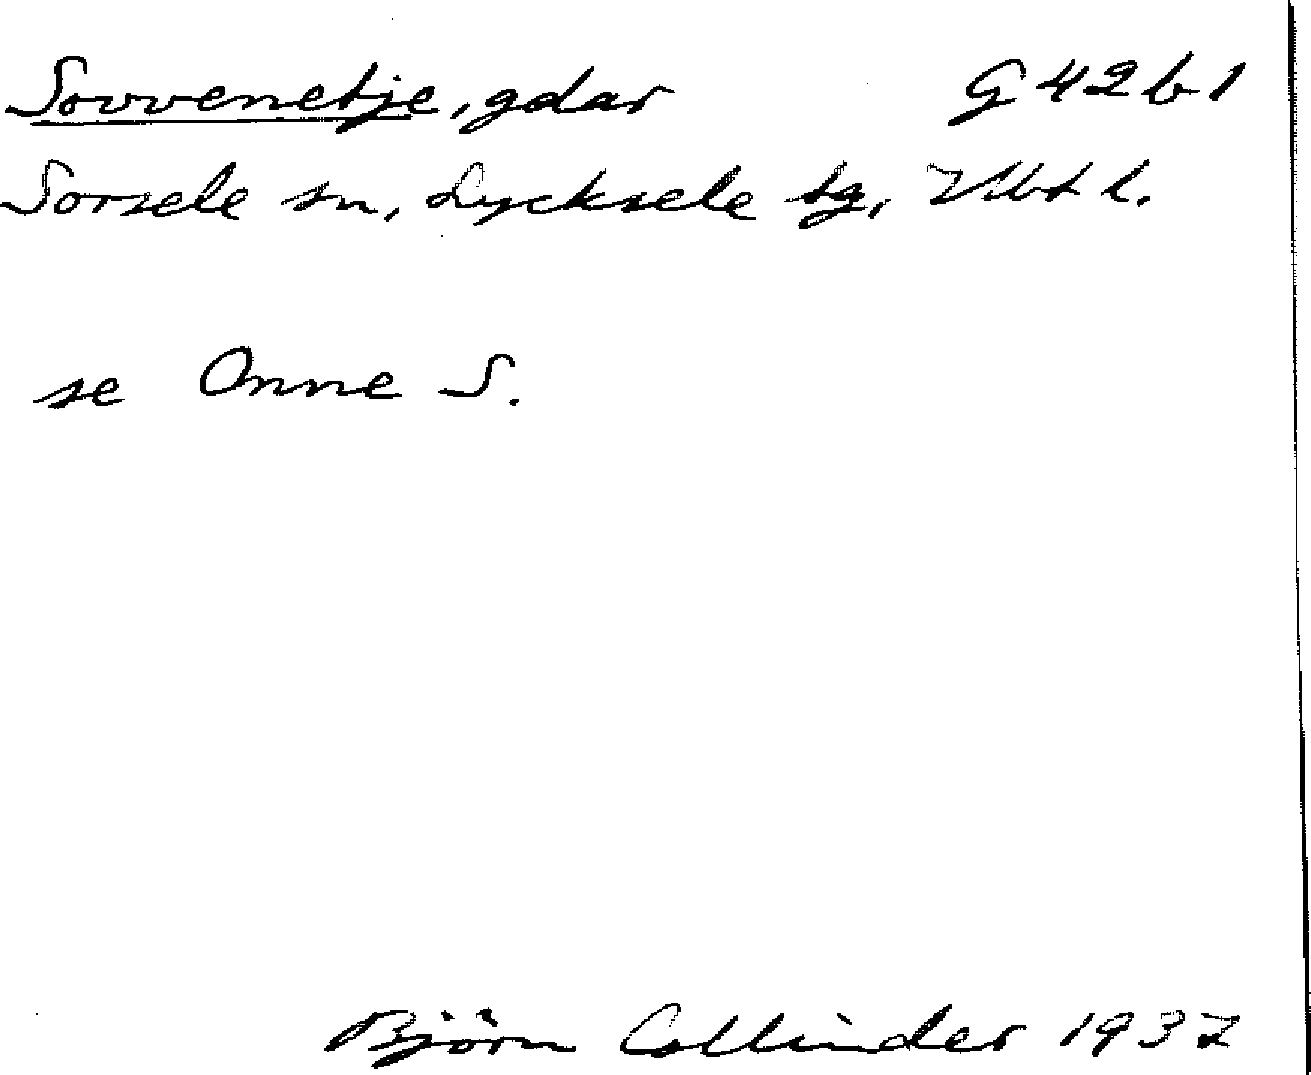 Sovvenetje, gdar G 42 b 1
Sorsele sn, Lycksele tg, Vbt l.
se Onne S.
Björn Collinder 1937